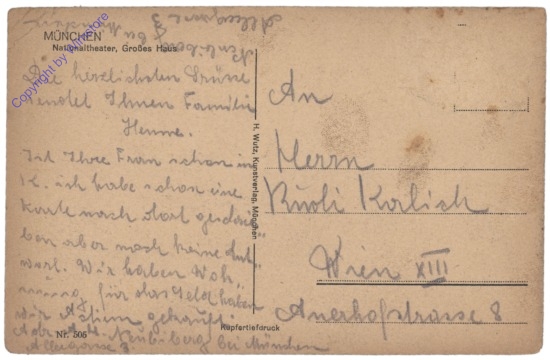 MÜNCHEN
Nationaltheater, Großes Haus
Die herzlichsten Grüße
sendet Ihnen Familie
Henne.
Ist Ihre Frau schon in
K. ich habe schon eine
Karte nach dort geschrie
ben aber noch keine Ant
wort. Wir haben Woh„
nung, für das Geld haben
wir Aktien gekauft.
Neubiberg bei München
Nr. 505
H. Wutz, Kunstverlag, München
Kupfertiefdruck
An
Herrn
Rudi Kalisch
Wien XIII
Auerhofstrasse 8
Copyright by oldthing